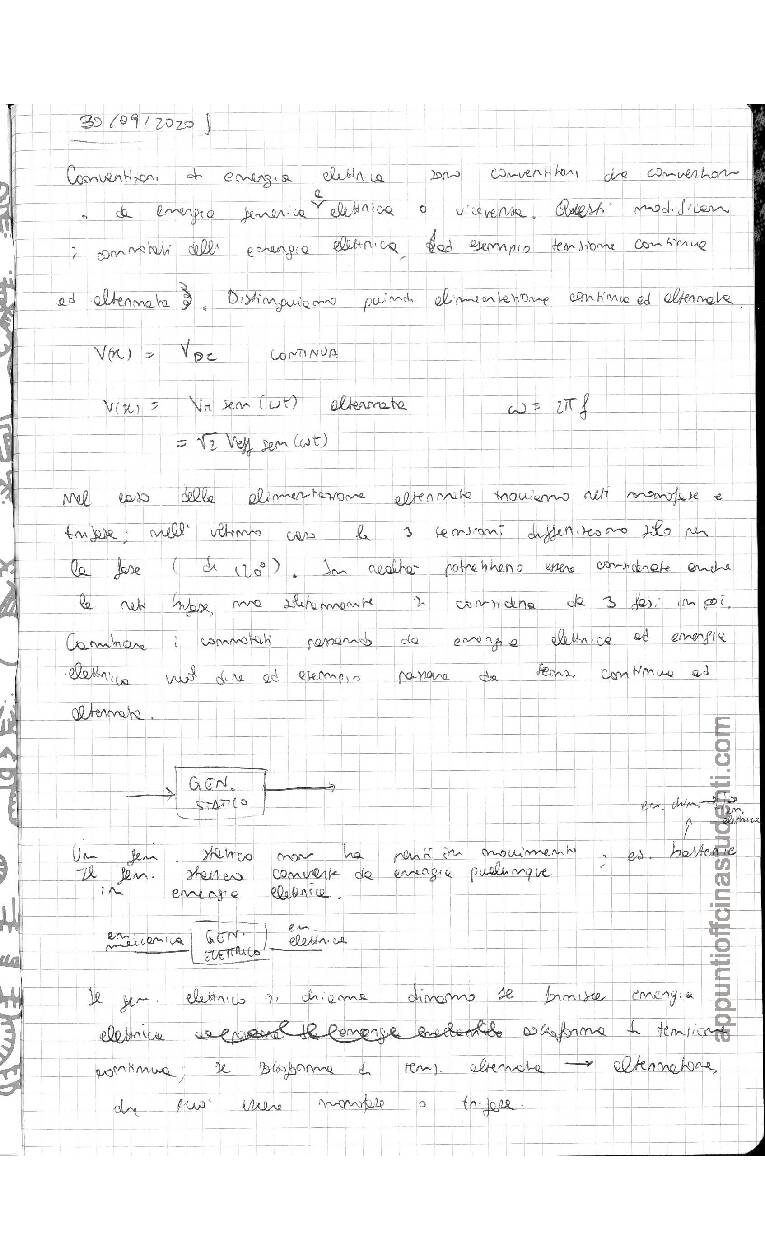 30/09/2020
Convertitori di energia elettrica sono convertitori che convertono
da energia generica e elettrica o viceversa. Questi modificano
i connotati dell' energia elettrica, ad esempio tensione continua
ed alternata. Distinguiamo quindi alimentazione continua ed alternata.
V(x) = VDC CONTINUA
V(x) = VM sen (ωt) alternata ω = 2π f
= √2 Veff sen (ωt)
Nel caso della alimentazione alternata troviamo reti monofase e
trifase; nell' ultimo caso le 3 tensioni differiscono solo per
la fase (di 120°). In realtà potrebbero essere considerate anche
le reti , ma si considera da 3 fasi in poi.
Cambiare i connotati passando da energia elettrica ad energia
elettrica vuol dire ad esempio passare da tens. continua ad
alternata.
GEN.
STATICO
en. chim. → en.
elettrica
Un gen. statico non ha parti in movimento ; es. batterie
Il gen. statico converte da energia qualunque
in energia elettrica.
en. meccanica GEN. ELETTRICO en. elettrica
Il gen. elettrico si chiama dinamo se fornisce energia
elettrica sottoforma di tensione
continua; se sottoforma di tens. alternata → alternatore,
che può essere monofase o trifase.
appuntiofficinastudenti.com